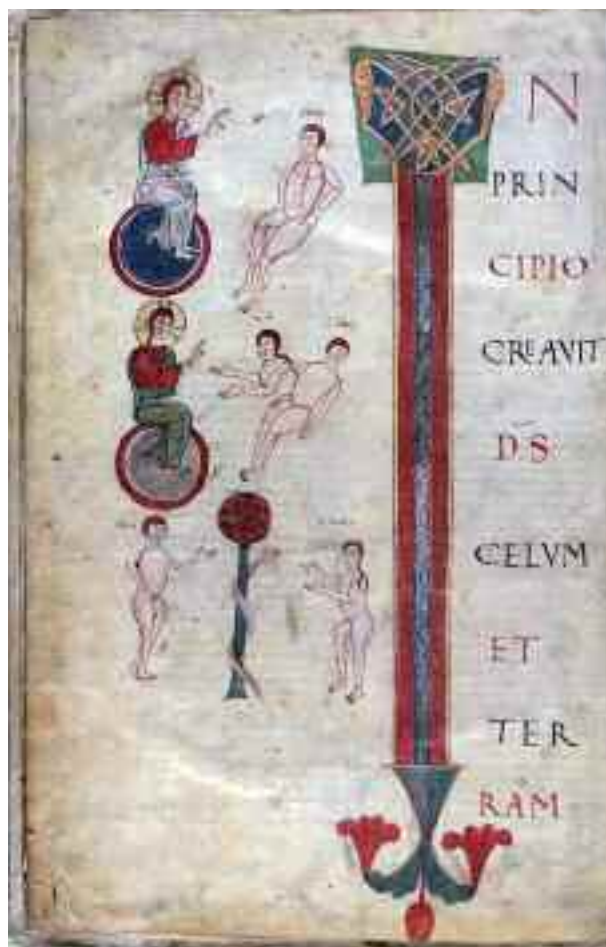 IN
PRIN
CIPIO
CREAVIT
D̅S
CELVM
ET
TER
RAM